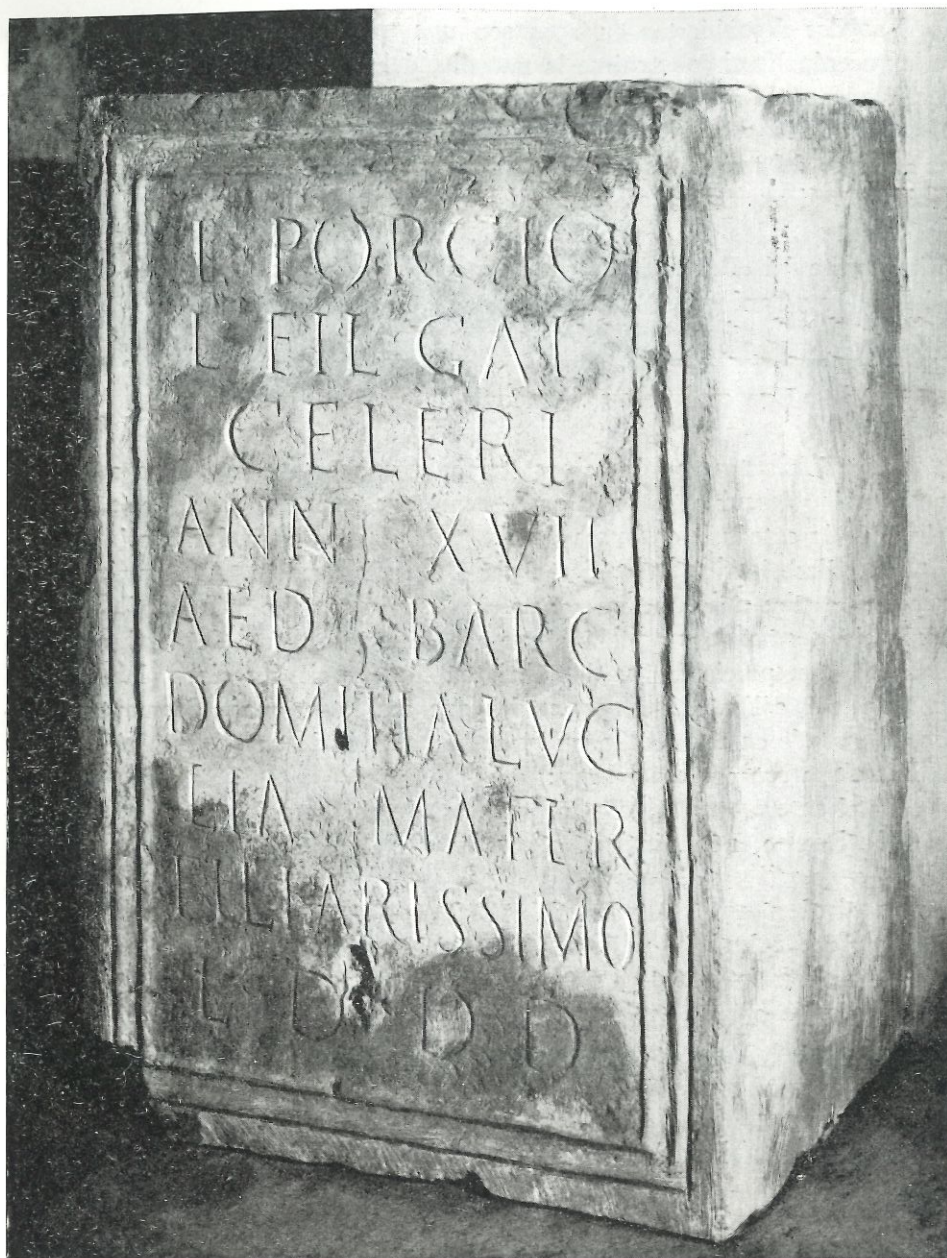 L PORCIO
L FIL GAL
CELERI
ANN XVII
AED BARC
DOMITIA LVCI
LIA MATER
FILI ARISSIMO
L D D D